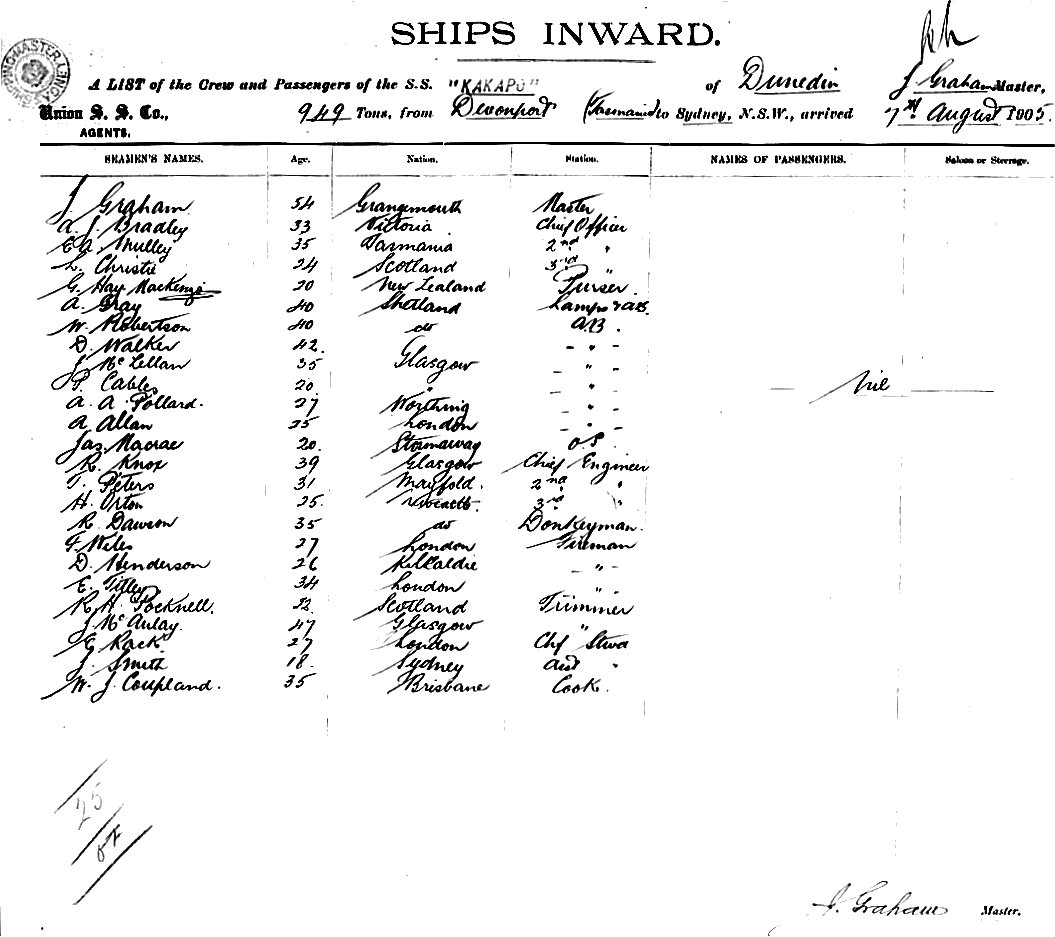 SHIPS INWARD.
A LIST of the Crew and Passengers of the S.S. "KAKAPO" of Dunedin J Graham Master,
Union S. S. Co., 949 Tons, from Devonport (Tasmania) to Sydney, N.S.W., arrived 7th August 1905
AGENTS.
SEAMEN'S NAMES. Age. Nation. Station. NAMES OF PASSENGERS. Saloon or Steerage.
J. Graham 54 Grangemouth Master
A. J. Bradley 33 Victoria Chief Officer
E A. Mulley 35 Tasmania 2nd "
L. Christie 24 Scotland 3rd "
G. Hay Mackenzie 20 New Zealand Purser
A. Gray 40 Shetland Lamps & AB.
W. Robertson 40 do AB.
D. Walker 42. - " -
J McLellan 35 Glasgow - " -
P. Cables 20 " - " - — Nil —
A. A. Pollard. 27 Worthing - " -
A Allan 25 London - " -
Jas. Macrae 20. Stornaway OS
R. Knox 39 Glasgow Chief Engineer
T. Peters 31 2nd "
H. Orton 25. 3rd "
R. Dawson 35 do Donkeyman.
F. Wiles 27 London Fireman
D. Henderson 26 - " -
E. Titley 34 London - " -
R. H. Pocknell. 22. Scotland Trimmer
J McAulay. 47 Glasgow "
E Rack 27 London Chf Stwd
J. Smith 18. Sydney "
W. J. Coupland. 35 Brisbane Cook.
25
J. Graham Master.